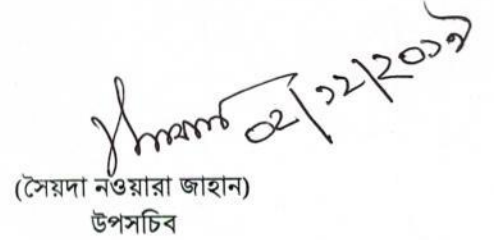 ০২/১২/২০১৯
(সৈয়দা নওয়ারা জাহান)
উপসচিব